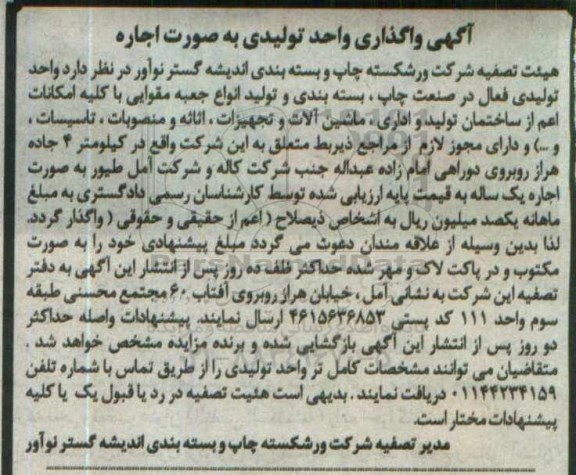 آگهی واگذاری واحد تولیدی به صورت اجاره
هیئت تصفیه شرکت ورشکسته چاپ و بسته بندی اندیشه گستر نوآور در نظر دارد واحد
تولیدی فعال در صنعت چاپ ، بسته بندی و تولید انواع جعبه مقوایی با کلیه امکانات
اعم از ساختمان تولید و اداری ، ماشین آلات و تجهیزات ، اثاثه و منصوبات ، تاسیسات ،
و ...) و دارای مجوز لازم از مراجع ذیربط متعلق به این شرکت واقع در کیلومتر ۴ جاده
هراز روبروی دوراهی امام زاده عبداله جنب شرکت کاله و شرکت آمل طیور به صورت
اجاره یک ساله به قیمت پایه ارزیابی شده توسط کارشناسان رسمی دادگستری به مبلغ
ماهانه یکصد میلیون ریال به اشخاص ذیصلاح ( اعم از حقیقی و حقوقی ) واگذار گردد.
لذا بدین وسیله از علاقه مندان دعوت می گردد مبلغ پیشنهادی خود را به صورت
مکتوب و در پاکت لاک و مهر شده حداکثر ظلف ده روز پس از انتشار این آگهی به دفتر
تصفیه این شرکت به نشانی آمل ، خیابان هراز روبروی آفتاب ۶۰ مجتمع محسنی طبقه
سوم واحد ۱۱۱ کد پستی ۴۶۱۵۶۳۶۸۵۳ ارسال نمایند. پیشنهادات واصله حداکثر
دو روز پس از انتشار این آگهی بازگشایی شده و برنده مزایده مشخص خواهد شد .
متقاضیان می توانند مشخصات کامل تر واحد تولیدی را از طریق تماس با شماره تلفن
۰۱۱۴۴۲۳۴۱۵۹ دریافت نمایند . بدیهی است هئیت تصفیه در رد یا قبول یک یا کلیه
پیشنهادات مختار است.
مدیر تصفیه شرکت ورشکسته چاپ و بسته بندی اندیشه گستر نوآور